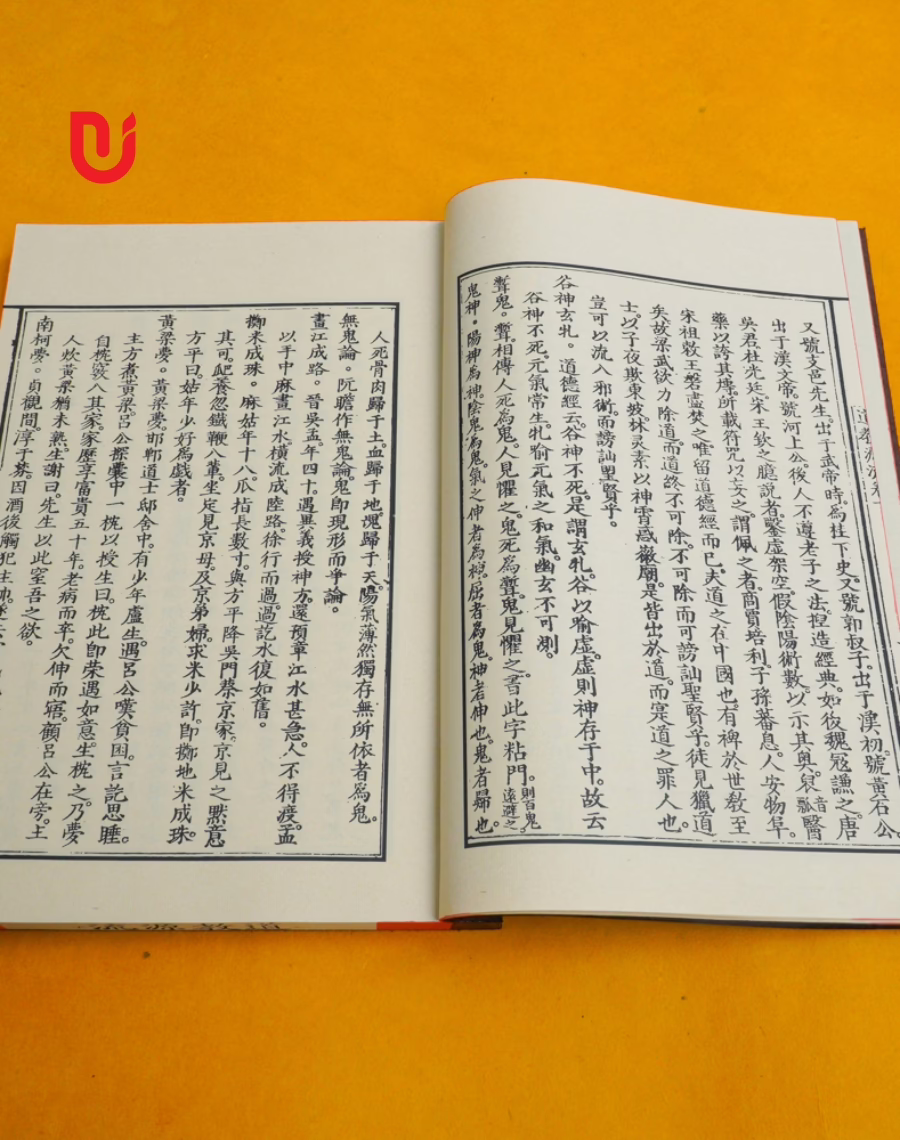 又號支邑先生。出于武帝時。為柱下史。又號郭叔子。出于漢初。號黃石公
出于漢文帝。號河上公。後人不遵老子之法。捏造經典。如後魏寇謙之。唐
吳君。杜光廷。宋王欽之。臆說者。鑿虛架空。假陰陽術數。以示其奧。音瓢醫
藥以誇其專。所載符咒以妄之。謂佩之者。商賈培利。子孫蕃息。人安物阜。
宋祖敕王磐盡焚之。唯留道德經而已。夫道之在中國也。有裨於世敎至
矣。故梁武欲力除道。而道終不可除。不可除而可謗訕聖賢乎。徒見獵道
士。以子夜欺東坡。林灵素以神霄惑徽廟。是皆出於道。而寔道之罪人也。
豈可以流入邪術。而謗訕聖賢乎。
谷神玄牝。道德經云。谷神不死。是謂玄牝。谷以喻虛。虛則神存于中。故云
谷神不死。元氣常生。牝喻元氣之和氣。幽玄不可測。
聻鬼。聻。相傳人死為鬼。人見懼之。鬼死為聻。鬼見懼之。書此字粘門。則百鬼遠避之。
鬼神。陽神為神。陰鬼為鬼。氣之伸者為神。屈者為鬼。神者伸也。鬼者歸也。
人死骨肉歸于土。血歸于地。魂歸于天。陽氣薄然獨存無所依者為鬼。
無鬼論。阮瞻作無鬼論。鬼即現形而爭論。
畫江成路。晉吳孟年四十。遇異義授神方。還預章江水甚急。人不得度。孟
以手中麻畫江水橫流成陸路。徐行而過。過訖水復如舊。
擲米成珠。麻姑年十八。爪指長數寸。與方平降吳門蔡京家。京見之默意
其可爬癢。忽鐵鞭八葉。坐定見京母。及京弟婦。求米少許。即擲地米成珠。
方平曰。姑年少好為戲者。
黃梁夢。黃梁夢。邯鄲道士。邸舍中。有少年盧生。遇呂公嘆貧困。言訖思睡。
主方煮黃梁。呂公探囊中一枕以授生曰。枕此即荣遇如意。生枕之。乃夢
自枕竅入其家。家歷享富貴五十年。老病而卒。欠伸而寤。顧呂公在旁。主
人炊黃梁猶未熟。生謝曰。先生以此窒吾之欲。
南柯夢。貞觀間。淳于棼。因酒後觸犯主帥。
道教源流